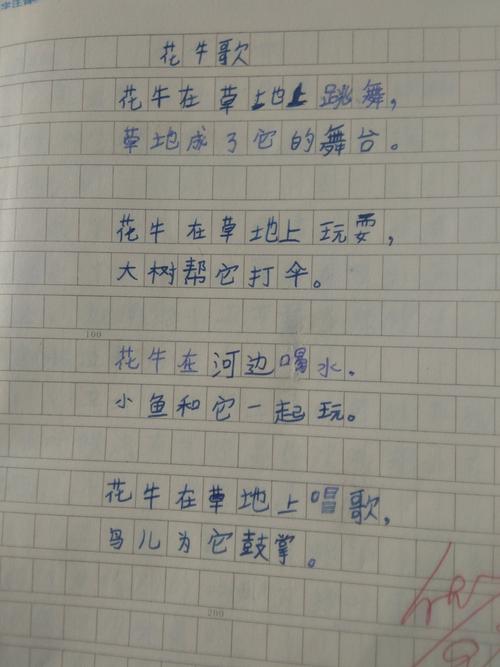 花牛歌
花牛在草地上跳舞，
草地成了它的舞台。
花牛在草地上玩耍，
大树帮它打伞。
100
花牛在河边喝水.
小鱼和它一起玩。
花牛在草地上唱歌,
鸟儿为它鼓掌。
200